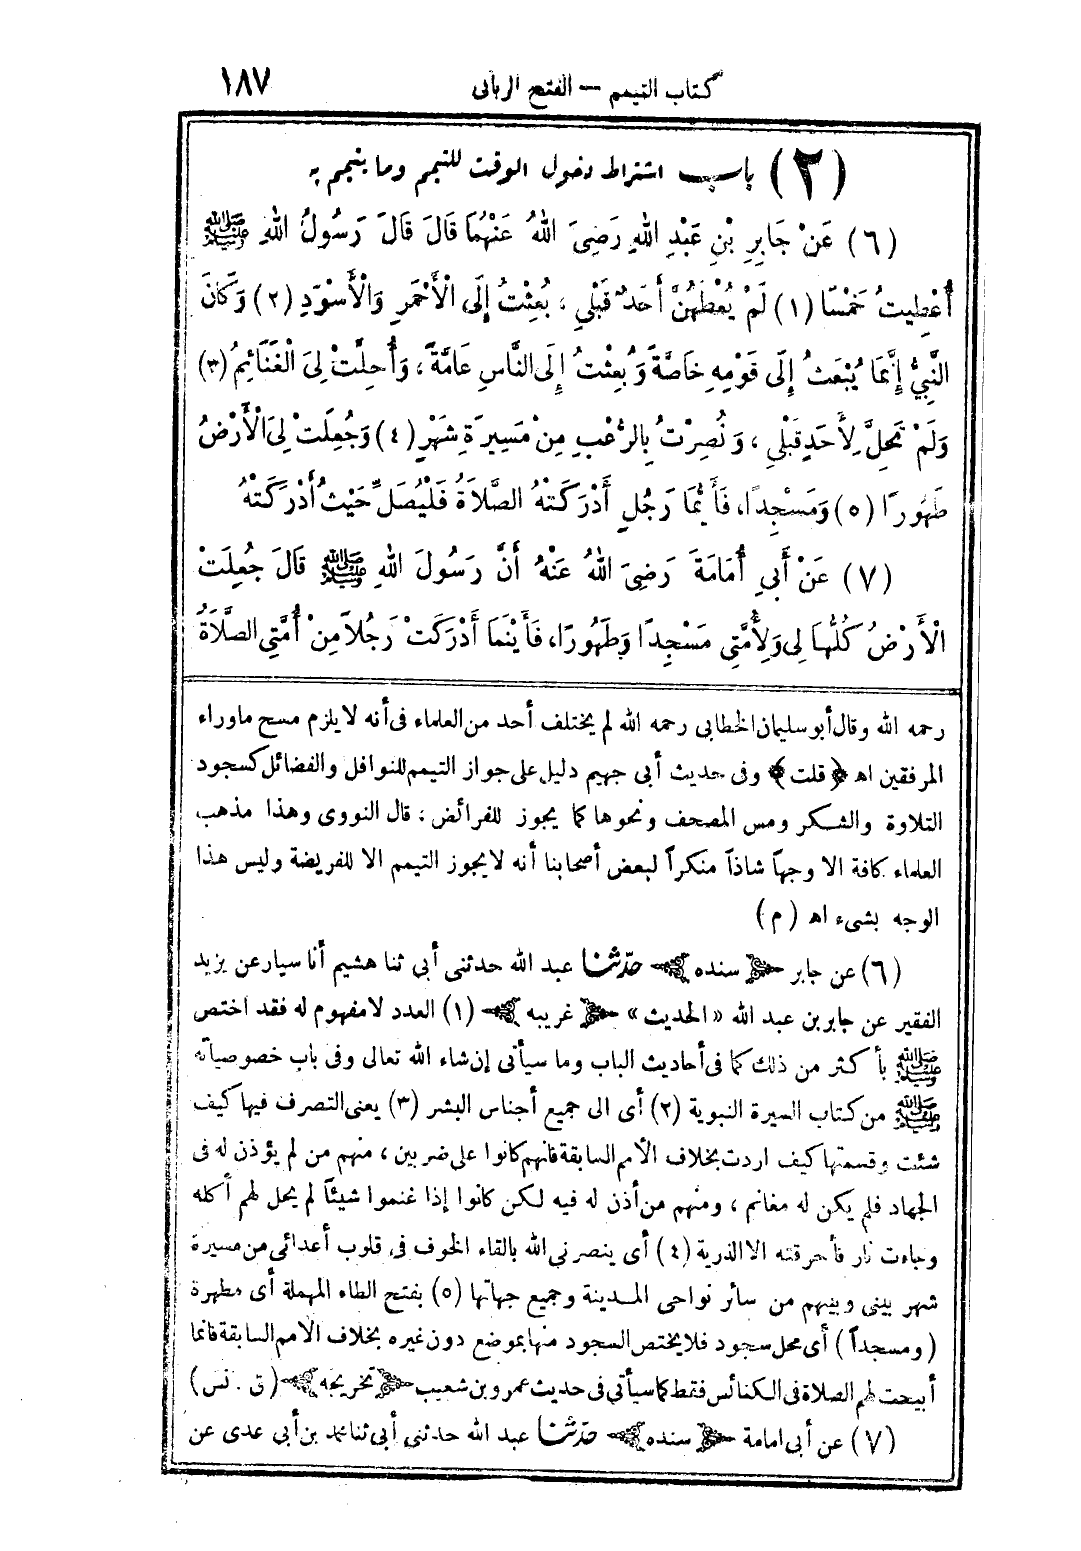 كتاب التيمم — الفتح الربانى ١٨٧
(٢) باب اشتراط دخول الوقت للتيمم وما يتيمم به
(٦) عَنْ جَابِرِ بْنِ عَبْدِ اللهِ رَضِىَ اللهُ عَنْهُمَا قَالَ قَالَ رَسُولُ اللهِ ﷺ
أُعْطِيتُ خَمْسًا (١) لَمْ يُعْطَهُنَّ أَحَدٌ قَبْلِي ، بُعِثْتُ إِلَى الْأَحْمَرِ وَالْأَسْوَدِ (٢) وَكَانَ
النَّبِيُّ إِنَّمَا يُبْعَثُ إِلَى قَوْمِهِ خَاصَّةً وَبُعِثْتُ إِلَى النَّاسِ عَامَّةً ، وَأُحِلَّتْ لِىَ الْغَنَائِمُ (٣)
وَلَمْ تَحِلَّ لِأَحَدٍ قَبْلِي ، وَنُصِرْتُ بِالرُّعْبِ مِنْ مَسِيرَةِ شَهْرٍ (٤) وَجُعِلَتْ لِىَ الْأَرْضُ
طَهُورًا (٥) وَمَسْجِدًا، فَأَيُّمَا رَجُلٍ أَدْرَكَتْهُ الصَّلَاةُ فَلْيُصَلِّ حَيْثُ أَدْرَكَتْهُ
(٧) عَنْ أَبِي أُمَامَةَ رَضِىَ اللهُ عَنْهُ أَنَّ رَسُولَ اللهِ ﷺ قَالَ جُعِلَتْ
الْأَرْضُ كُلُّهَا لِى وَلِأُمَّتِي مَسْجِدًا وَطَهُورًا، فَأَيْنَمَا أَدْرَكَتْ رَجُلاً مِنْ أُمَّتِي الصَّلَاةُ
رحمه الله وقال أبو سليمان الخطابى رحمه الله لم يختلف أحد من العلماء فى أنه لا يلزم مسح ماوراء
المرفقين اهـ ﴿قلت﴾ وفى حديث أبى جهيم دليل على جواز التيمم للنوافل والفضائل كسجود
التلاوة والشكر ومس المصحف ونحوها كما يجوز للفرائض ، قال النووى وهذا مذهب
العلماء كافة الا وجهاً شاذاً منكراً لبعض أصحابنا أنه لا يجوز التيمم الا للفريضة وليس هذا
الوجه بشىء اهـ (م)
(٦) عن جابر ﴿سنده﴾ حدّثنا عبد الله حدثنى أبى ثنا هشيم أنا سيار عن يزيد
الفقير عن جابر بن عبد الله «الحديث» ﴿غريبه﴾ (١) العدد لا مفهوم له فقد اختص
ﷺ بأكثر من ذلك كما فى أحاديث الباب وما سيأتى إن شاء الله تعالى وفى باب خصوصياته
ﷺ من كتاب السيرة النبوية (٢) أى الى جميع أجناس البشر (٣) يعنى التصرف فيها كيف
شئت وقسمتها كيف اردت بخلاف الأمم السابقة فانهم كانوا على ضربين ، منهم من لم يؤذن له فى
الجهاد فلم يكن له مغانم ، ومنهم من أذن له فيه لكن كانوا إذا غنموا شيئاً لم يحل لهم أكله
وجاءت نار فأحرقته الا الذرية (٤) أى ينصرنى الله بالقاء الخوف فى قلوب أعدائى من مسيرة
شهر بينى وبينهم من سائر نواحى المدينة وجميع جهاتها (٥) بفتح الطاء المهملة أى مطهرة
(ومسجداً) أى محل سجود فلا يختص السجود منها بموضع دون غيره بخلاف الامم السابقة فانما
أبيحت لهم الصلاة فى الكنائس فقط كما سيأتى فى حديث عمرو بن شعيب ﴿تخريجه﴾ (ق . نس)
(٧) عن أبى امامة ﴿سنده﴾ حدّثنا عبد الله حدثنى أبى ثنا محمد بن أبى عدى عن